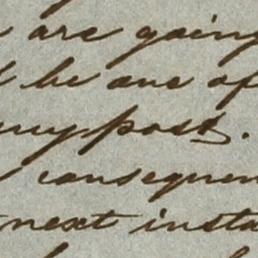 are going
be one of
any post.
consequen
next insta